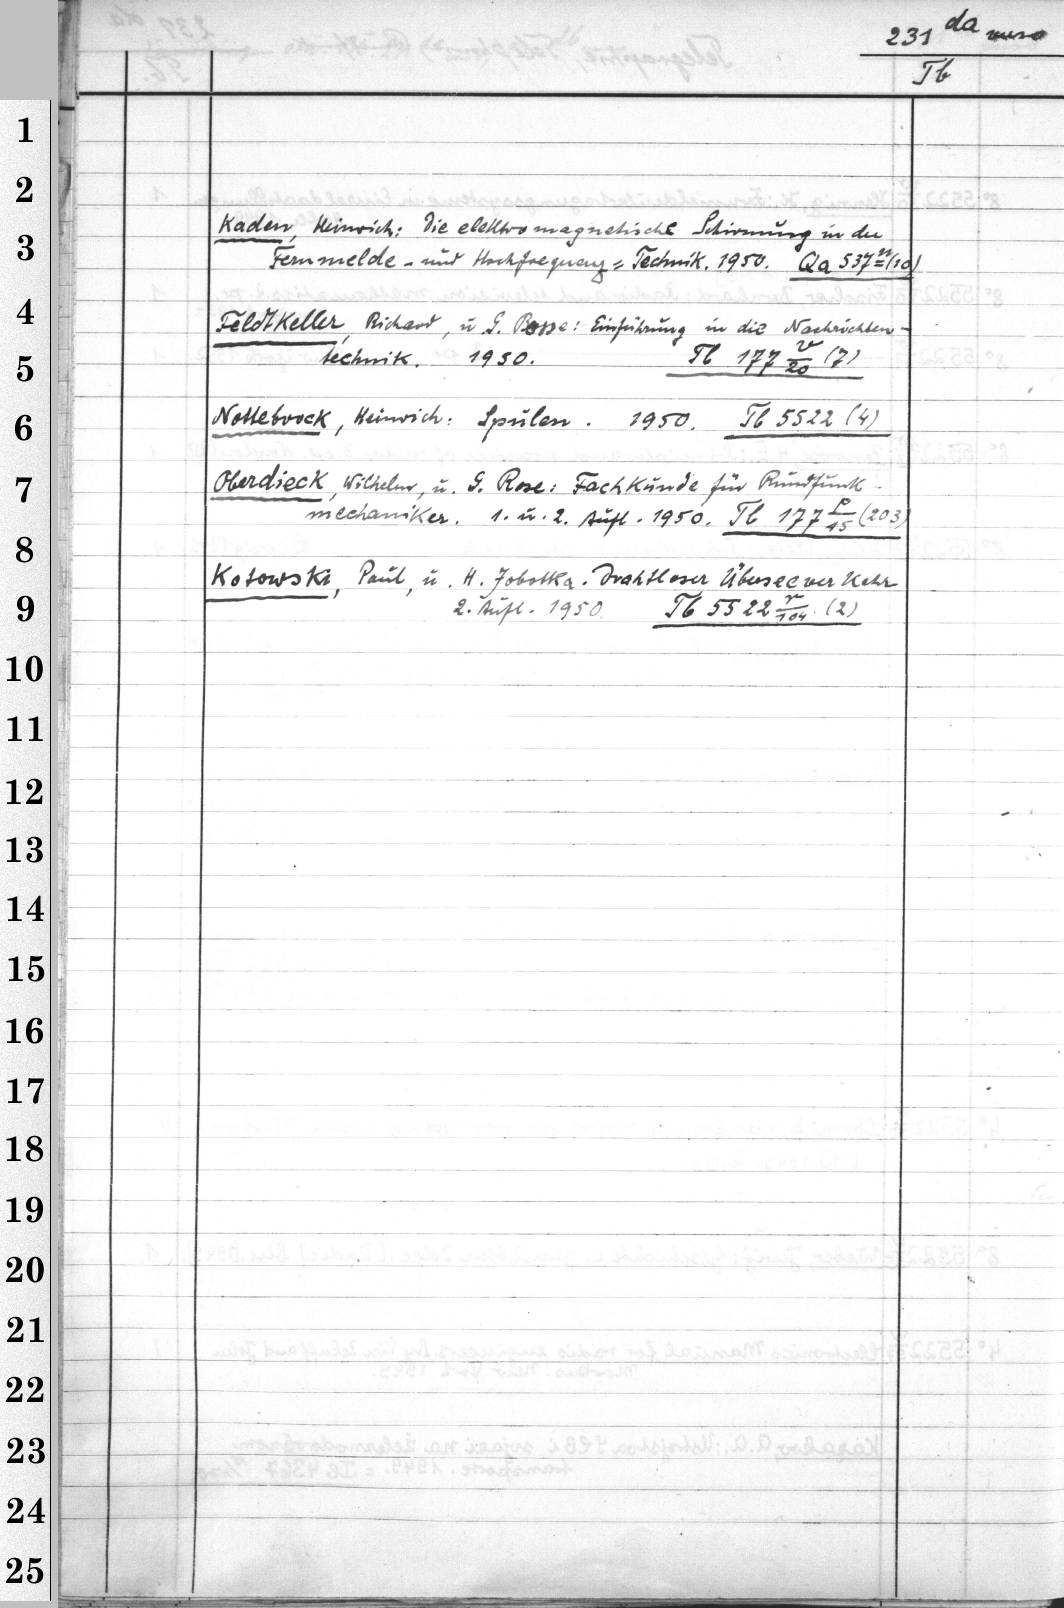 231 da verso
Tb
1
2
Kaden, Heinrich: Die elektromagnetische Schirmung in der
3
Fernmelde- und Hochfrequenz=Technik. 1950. Qa 537 n= (10)
4
Feldtkeller, Richard, u. G. Bosse: Einführung in die Nachrichten-
5
technik. 1950. Tb 177 v/20 (7)
6
Nottebrock, Heinrich: Spulen. 1950. Tb 5522 (4)
7
Oberdieck, Wilhelm, u. G. Rose: Fachkunde für Rundfunk-
mechaniker. 1. u. 2. Aufl. 1950. Tb 177 p/15 (203)
8
Kotowski, Paul, u. H. Jobotka. Drahtloser Überseeverkehr
9
2. Aufl. 1950 Tb 5522 r/104 (2)
10
11
12
13
14
15
16
17
18
19
20
21
22
23
24
25